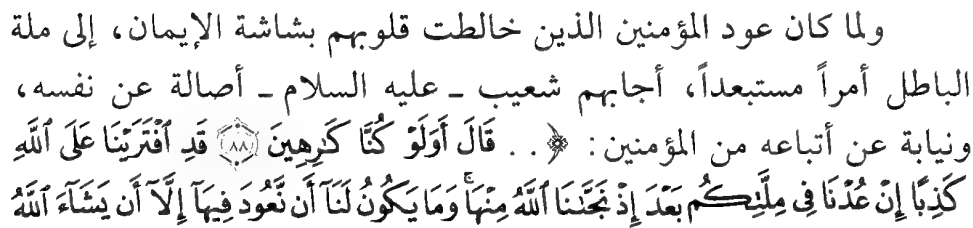 ولما كان عود المؤمنين الذين خالطت قلوبهم بشاشة الإيمان، إلى ملة
الباطل أمراً مستبعداً، أجابهم شعيب ـ عليه السلام ـ أصالة عن نفسه،
ونيابة عن أتباعه من المؤمنين: ﴿. . قَالَ أَوَلَوْ كُنَّا كَٰرِهِينَ ۝٨٨ قَدِ ٱفْتَرَيْنَا عَلَى ٱللَّهِ
كَذِبًا إِنْ عُدْنَا فِى مِلَّتِكُم بَعْدَ إِذْ نَجَّىٰنَا ٱللَّهُ مِنْهَا ۚ وَمَا يَكُونُ لَنَآ أَن نَّعُودَ فِيهَآ إِلَّآ أَن يَشَآءَ ٱللَّهُ